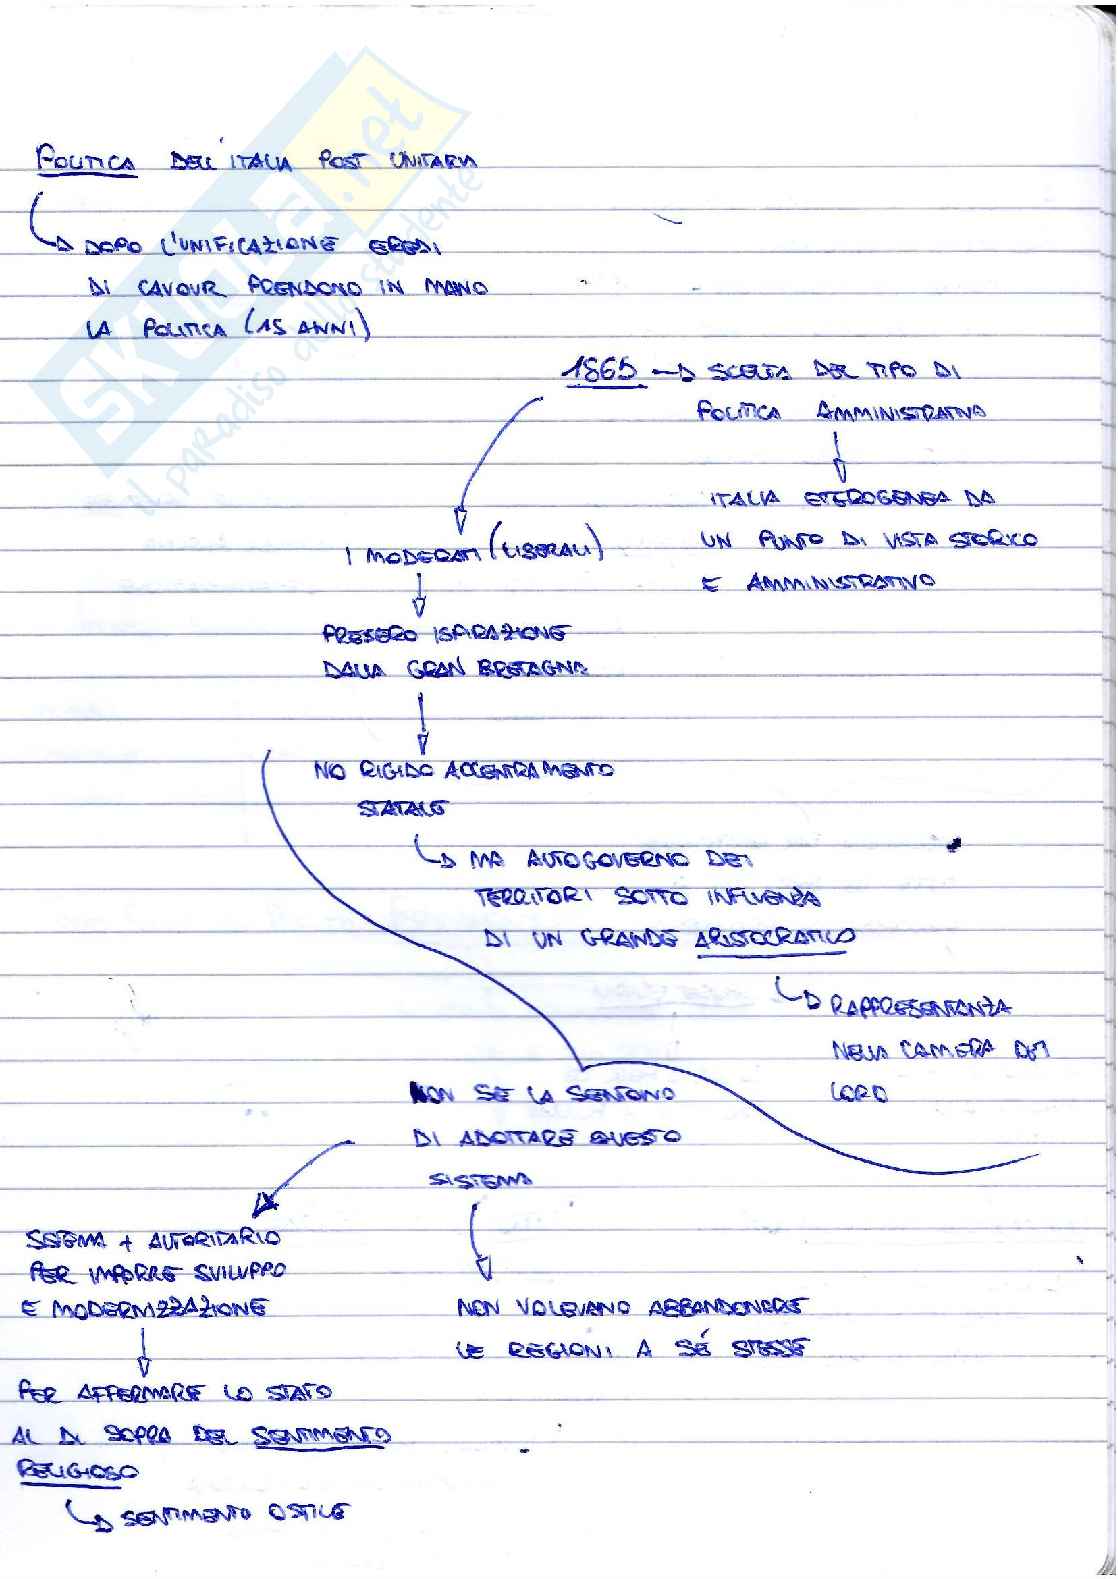 POLITICA DELL'ITALIA POST UNITARIA
DOPO L'UNIFICAZIONE EREDI
DI CAVOUR PRENDONO IN MANO
LA POLITICA (15 ANNI)
1865 → SCELTA DEL TIPO DI
POLITICA AMMINISTRATIVA
ITALIA ETEROGENEA DA
UN PUNTO DI VISTA STORICO
E AMMINISTRATIVO
I MODERATI (LIBERALI)
PRESERO ISPIRAZIONE
DALLA GRAN BRETAGNA
NO RIGIDO ACCENTRAMENTO
STATALE
MA AUTOGOVERNO DEI
TERRITORI SOTTO INFLUENZA
DI UN GRANDE ARISTOCRATICO
RAPPRESENTANZA
NELLA CAMERA DEI
LORD
NON SE LA SENTONO
DI ADOTTARE QUESTO
SISTEMA
SISTEMA + AUTORITARIO
PER IMPORRE SVILUPPO
E MODERNIZZAZIONE
NON VOLEVANO ABBANDONARE
LE REGIONI A SÉ STESSE
PER AFFERMARE LO STATO
AL DI SOPRA DEL SENTIMENTO
RELIGIOSO
SENTIMENTO OSTILE
SKUOLA.net
il paradiso dello studente